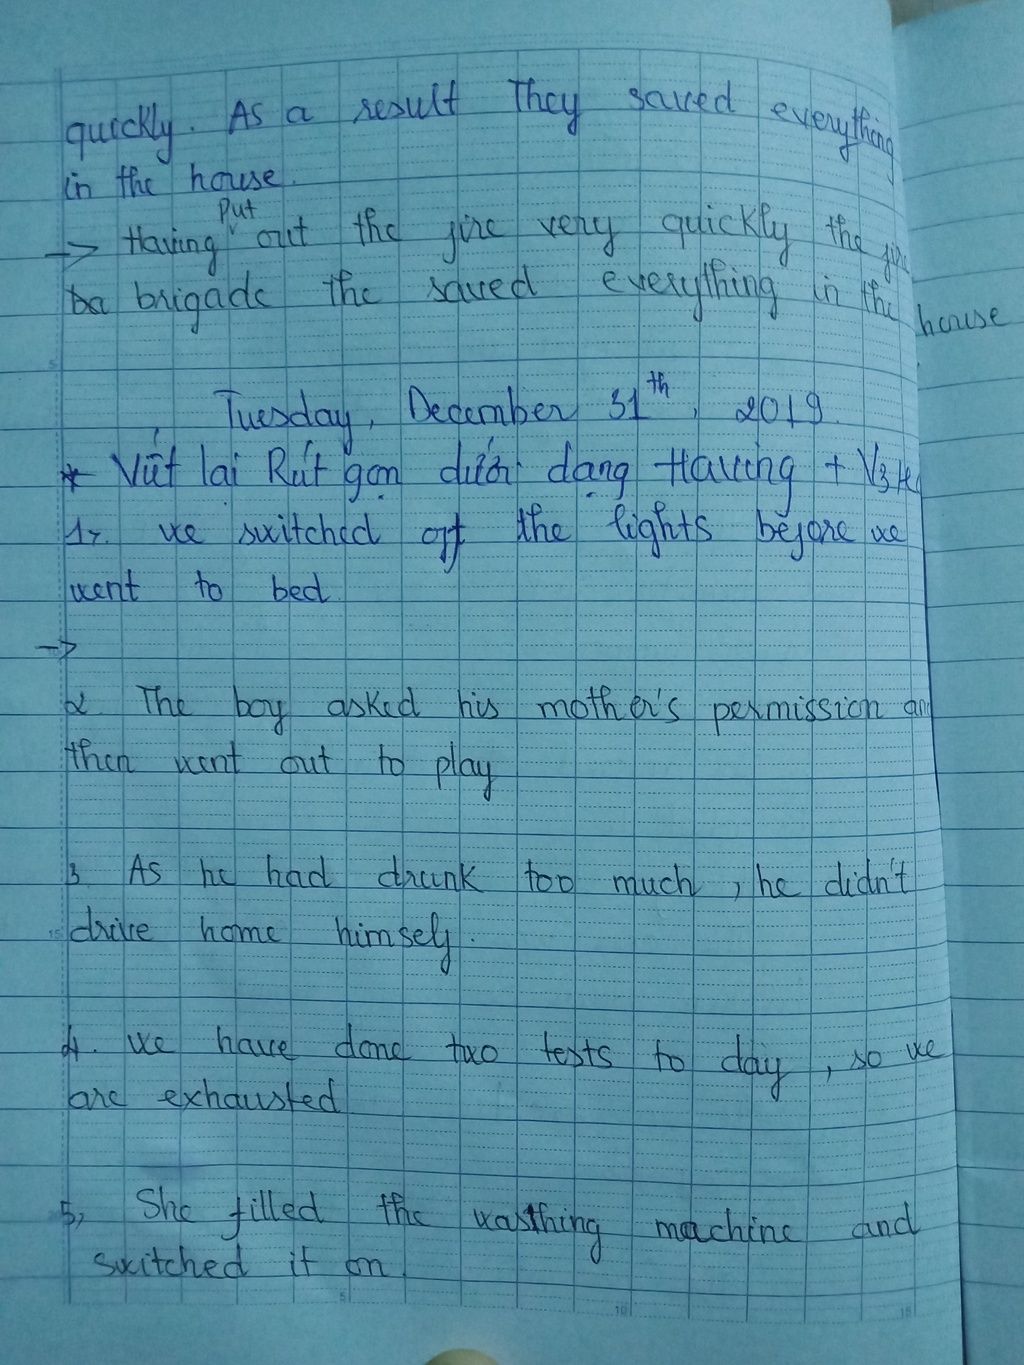 quickly. As a result They saved everything
in the house.
-> Having put out the fire very quickly the fire
ba brigade the saved everything in the house
Tuesday, December 31th, 2019.
* Viết lại Rút gọn dưới dạng Having + V3/ed
1, we switched off the lights before we
went to bed
->
2 The boy asked his mother's permission an
then went out to play
3. As he had drunk too much, he didn't
drive home himself.
4. we have done two tests to day, so we
are exhausted
5, She filled the wasthing machine and
switched it on.